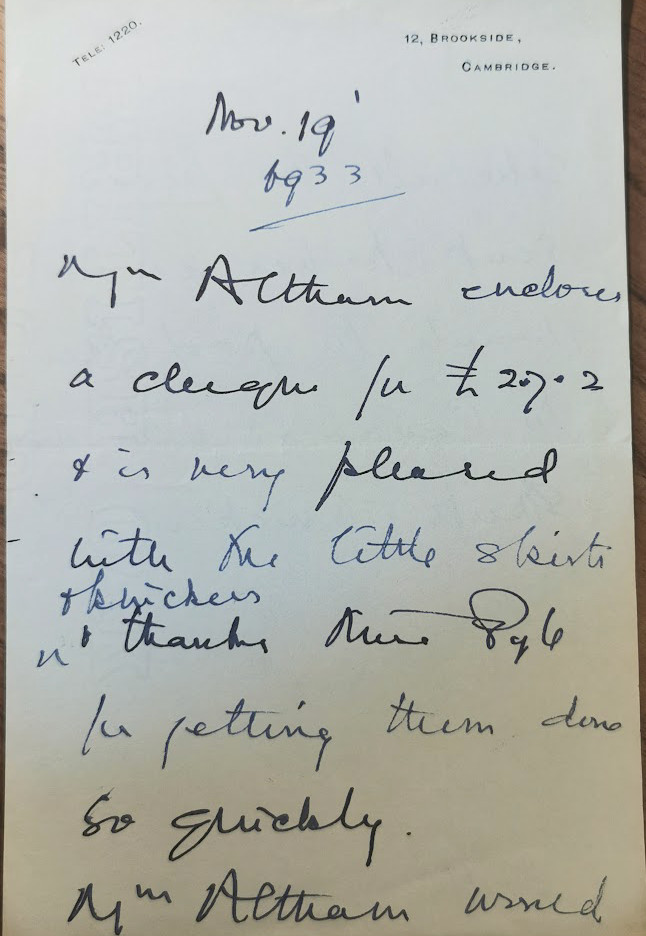 TELE: 1220.
12, BROOKSIDE,
CAMBRIDGE.
Nov. 19
1933
Altham encloses
a cheque for £2.7.2
& is very pleased
with the little skirts
& knickers
& thanks
for getting them done
so quickly.
Altham would